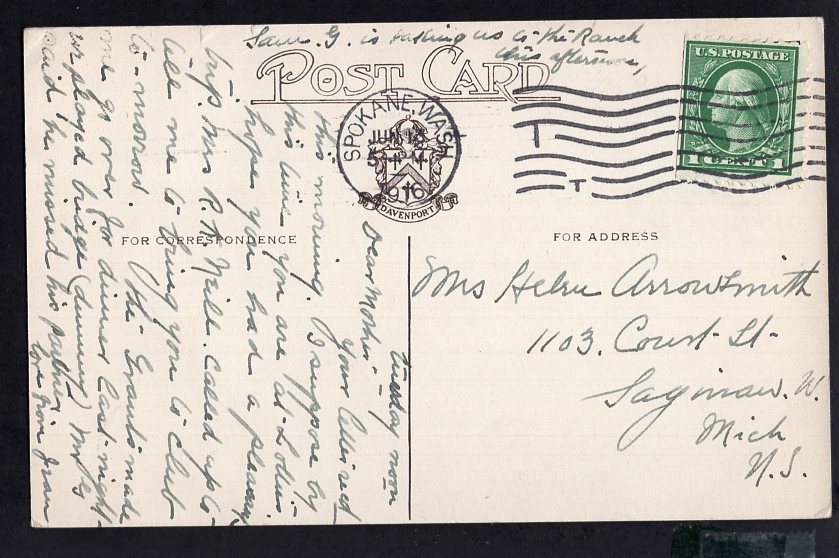 Sam. G. is taking us to the Ranch
this afternoon,
POST CARD
U.S. POSTAGE
1 CENT 1
SPOKANE, WASH
JUN
5- PM
1916
DAVENPORT
FOR CORRESPONDENCE
FOR ADDRESS
Tuesday noon
Dear Mother-
Your letter recd
this morning. I suppose by
this time you are at
hope you had a pleasant
trip. Mrs R. Neill called up to-
tell me to bring you to club
to-morrow. The Grants made
me go over for dinner last night-
we played bridge (dummy) Mr G
said he missed his partner
Love from
Mrs Helen Arrowsmith
1103. Court St-
Saginaw. W.
Mich
U.S.